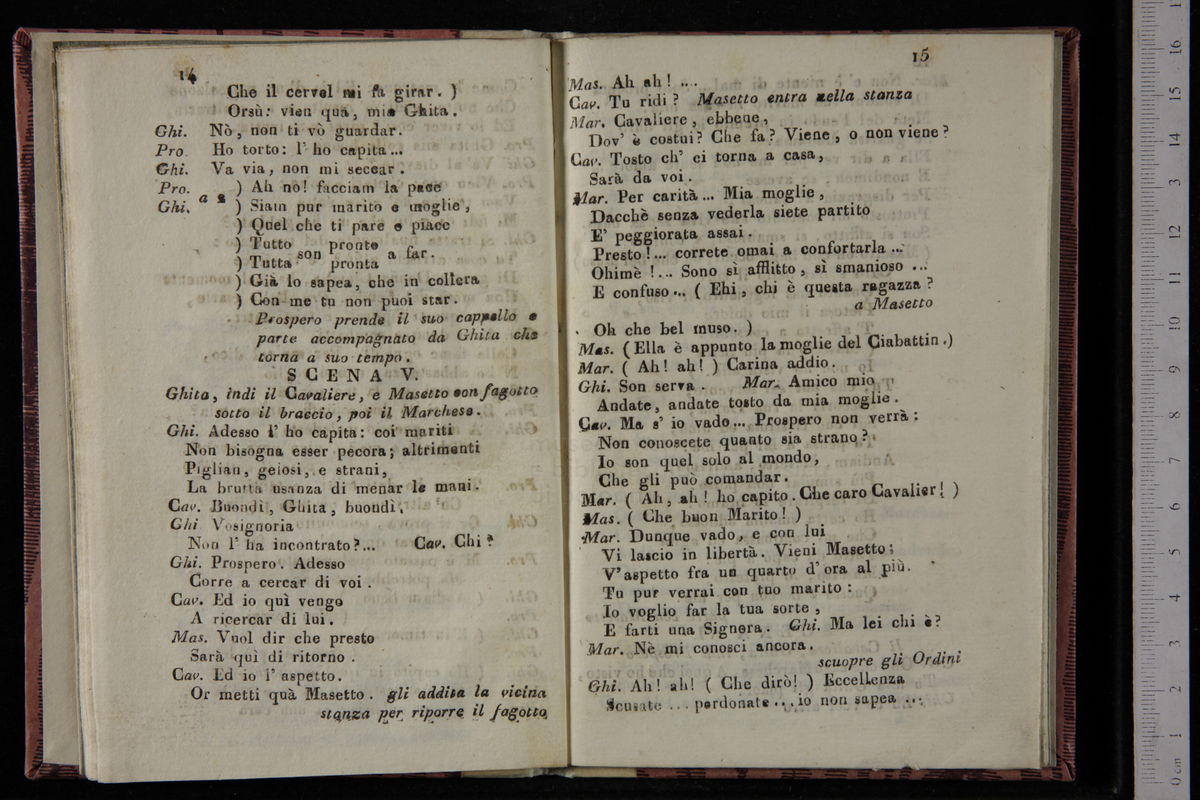 14
Che il cervel mi fa girar. )
Orsù: vien quà, mia Ghita.
Ghi. Nò, non ti vò guardar.
Pro. Ho torto: l' ho capita...
Ghi. Va via, non mi seccar.
Pro. ) Ah nò! facciam la pace
Ghi. a 2 ) Siam pur marito e moglie,
) Quel che ti pare e piace
) Tutto son pronto a far.
) Tutta pronta
) Già lo sapea, che in collera
) Con me tu non puoi star.
Prospero prende il suo cappello e
parte accompagnato da Ghita che
torna a suo tempo.
SCENA V.
Ghita, indi il Cavaliere, e Masetto con fagotto
sotto il braccio, poi il Marchese.
Ghi. Adesso l' ho capita: coi mariti
Non bisogna esser pecora; altrimenti
Piglian, gelosi, e strani,
La brutta usanza di menar le mani.
Cav. Buondì, Ghita, buondì.
Ghi Vosignoria
Non l' ha incontrato?... Cav. Chi?
Ghi. Prospero. Adesso
Corre a cercar di voi.
Cav. Ed io quì vengo
A ricercar di lui.
Mas. Vuol dir che presto
Sarà quì di ritorno.
Cav. Ed io l' aspetto.
Or metti quà Masetto. gli addita la vicina
stanza per riporre il fagotto
15
Mas. Ah ah! ...
Cav. Tu ridi? Masetto entra nella stanza
Mar. Cavaliere, ebbene,
Dov' è costui? Che fa? Viene, o non viene?
Cav. Tosto ch' ei torna a casa,
Sarà da voi.
Mar. Per carità... Mia moglie,
Dacchè senza vederla siete partito
E' peggiorata assai.
Presto!... correte omai a confortarla ...
Ohimè!... Sono sì afflitto, sì smanioso ...
E confuso... ( Ehi, chi è questa ragazza?
a Masetto
Oh che bel muso. )
Mas. (Ella è appunto la moglie del Ciabattin.)
Mar. ( Ah! ah! ) Carina addio.
Ghi. Son serva. Mar. Amico mio
Andate, andate tosto da mia moglie.
Cav. Ma s' io vado... Prospero non verrà:
Non conoscete quanto sia strano?
Io son quel solo al mondo,
Che gli può comandar.
Mar. ( Ah, ah! ho capito. Che caro Cavalier! )
Mas. ( Che buon Marito! )
Mar. Dunque vado, e con lui
Vi lascio in libertà. Vieni Masetto;
V'aspetto fra un quarto d'ora al più.
Tu pur verrai con tuo marito:
Io voglio far la tua sorte,
E farti una Signora. Ghi. Ma lei chi è?
Mar. Nè mi conosci ancora.
scuopre gli Ordini
Ghi. Ah! ah! ( Che dirò! ) Eccellenza
Scusate ... perdonate ... io non sapea ...